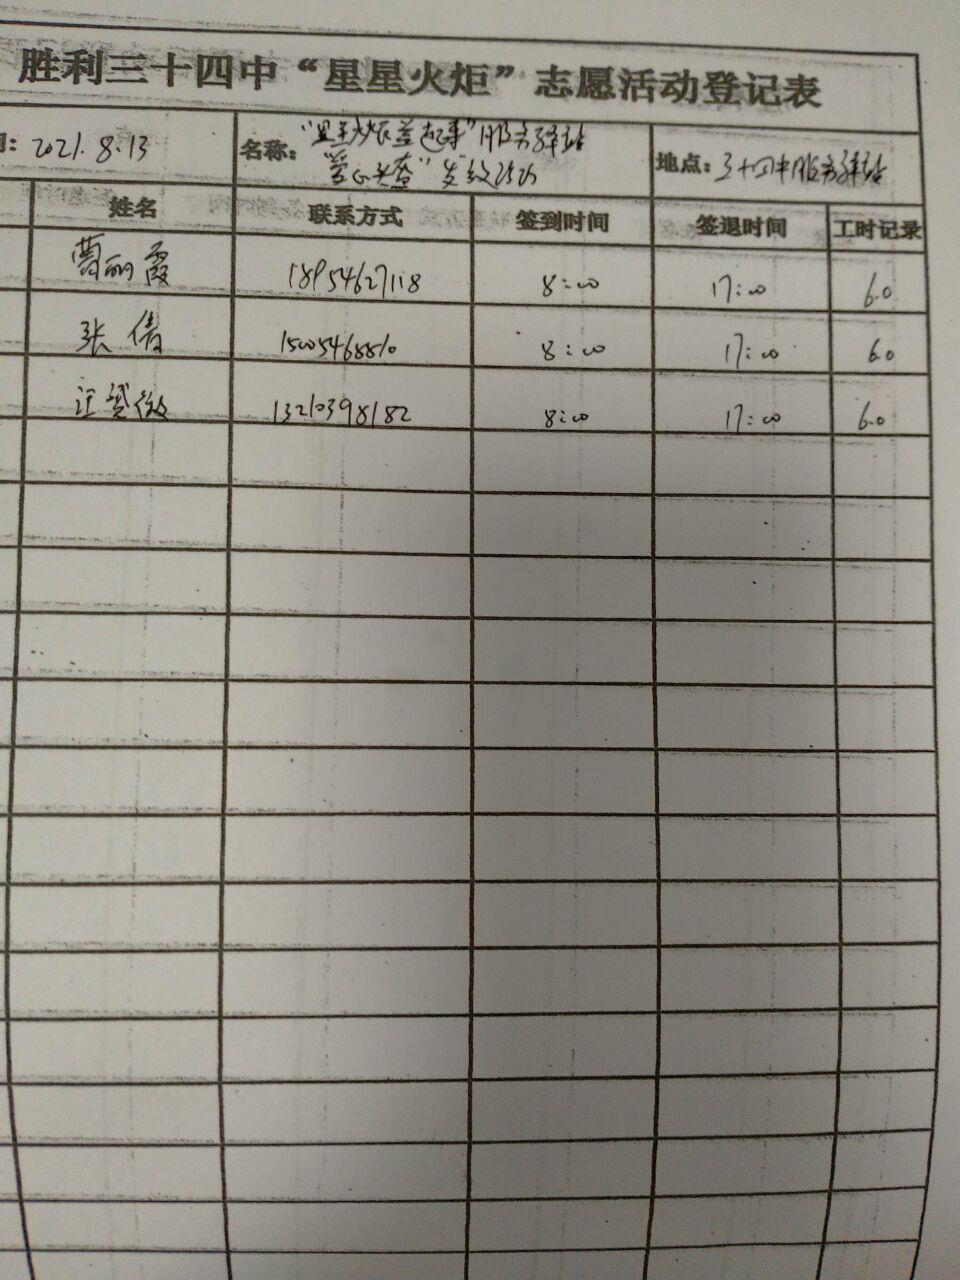 胜利三十四中“星星火炬”志愿活动登记表
2021.8.13 名称：“星星火炬益起来”服务驿站 地点：三十四中服务驿站
“爱心义卖” 活动
姓名 联系方式 签到时间 签退时间 工时记录
曹丽霞 18954627118 8:00 17:00 6.0
张倩 15005468810 8:00 17:00 6.0
汪贤微 13210398182 8:00 17:00 6.0